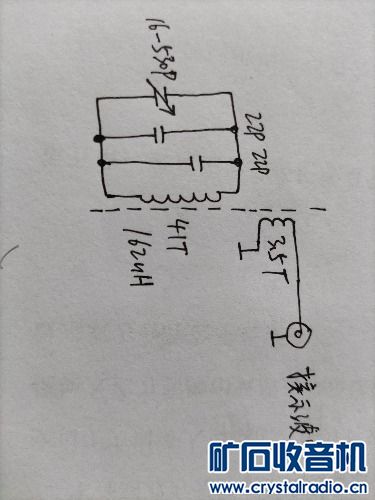 16-530P
22P 22P
41T
162uH
3.5T
接示波
矿石收音机
www.crystalradio.cn